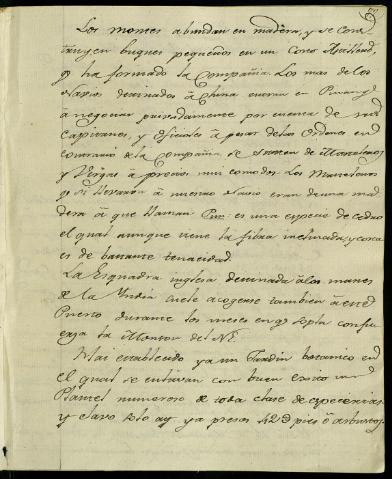 Los montes abundan en madera, y se cons-
truyen buques pequeños en un Corto
q.e ha formado la Compañia. Los mas de los
Navios destinados à China entran en Pinang
à negociar privadamente por cuenta de sus
Capitanes, y Oficiales à pesar de las Ordenes en
contrario de la Compañia. Se surten de Masteleros
y Vergas à precios muy comodos. Los Masteleros
q.e se llevaron à nuestro Navio eran de una ma-
dera à que llaman es una especie de cedro
el qual aunque tiene la fibra inclinada, y corta
es de bastante tenacidad.
La Esquadra inglesa destinada à los mares
de la India suele acogerse tambien à este
Puerto durante los meses en q.e sopla con fu-
erza la Monson del NE.
Està establecido ya un Jardin botanico en
el qual se cultivan con buen exito un
Plantel numeroso de toda clase de especerias,
y clavo solo ay ya presos 42 pies ò arbustos,